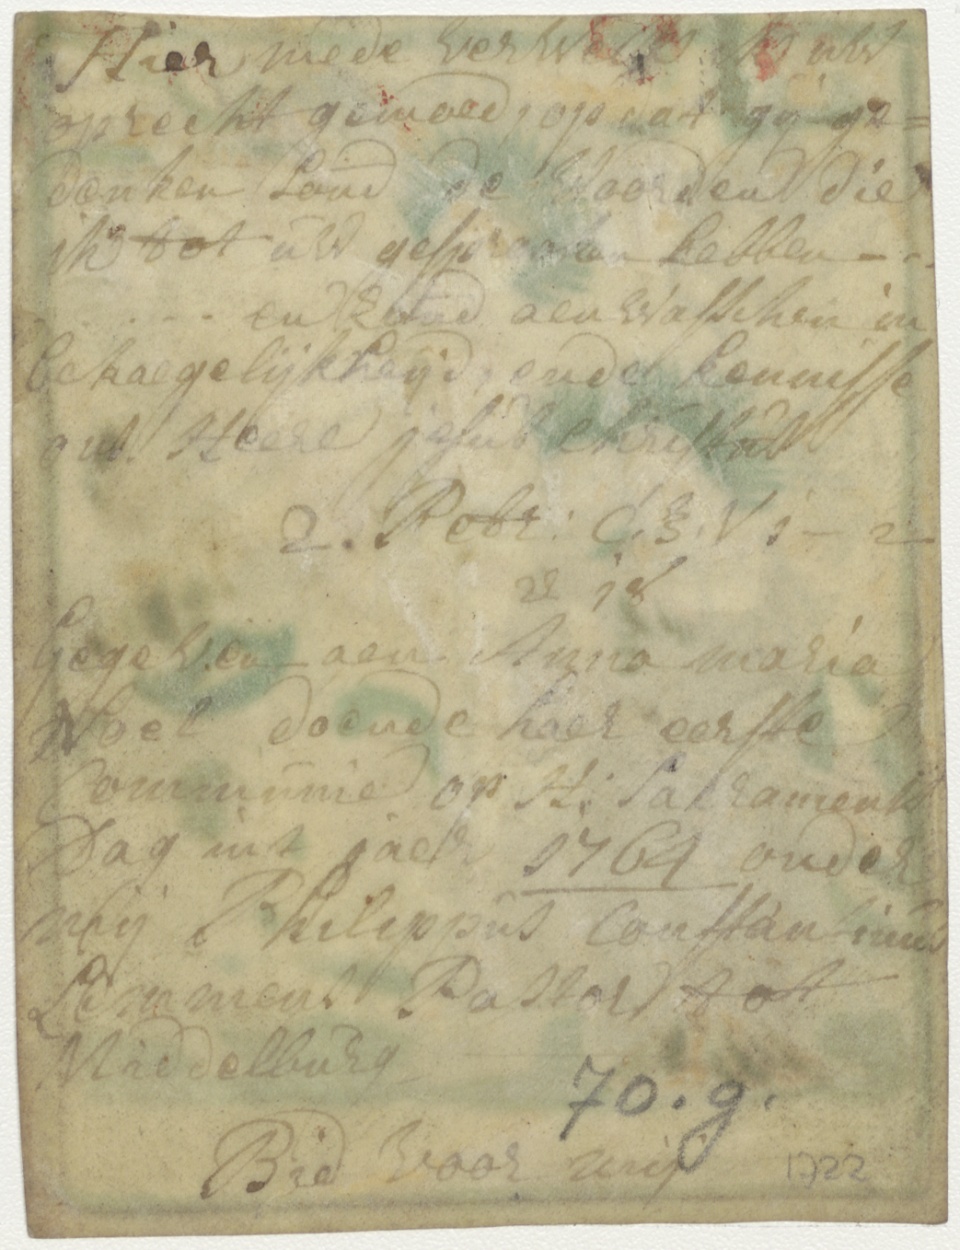 Hier mede verwekke ick uw
oprecht gemoed, opdat gij ge=
denken soud de Woorden die
ik tot uw gesproken hebben - ..
. . - . . en soud aenwasschen in
behaegelijkheijd, ende kennisse
ons Heere jesus christus
2. Petr: C. 3. V 1 - 2
18
Gegeven aen Anna maria
Noel doende haer eerste
Communie op H: Sakraments
Dag int jaer 1764 onder
mij Philippus Constantinus
Lemmens Pastor tot
Middelburg
70.g.
Bid voor mij 1722